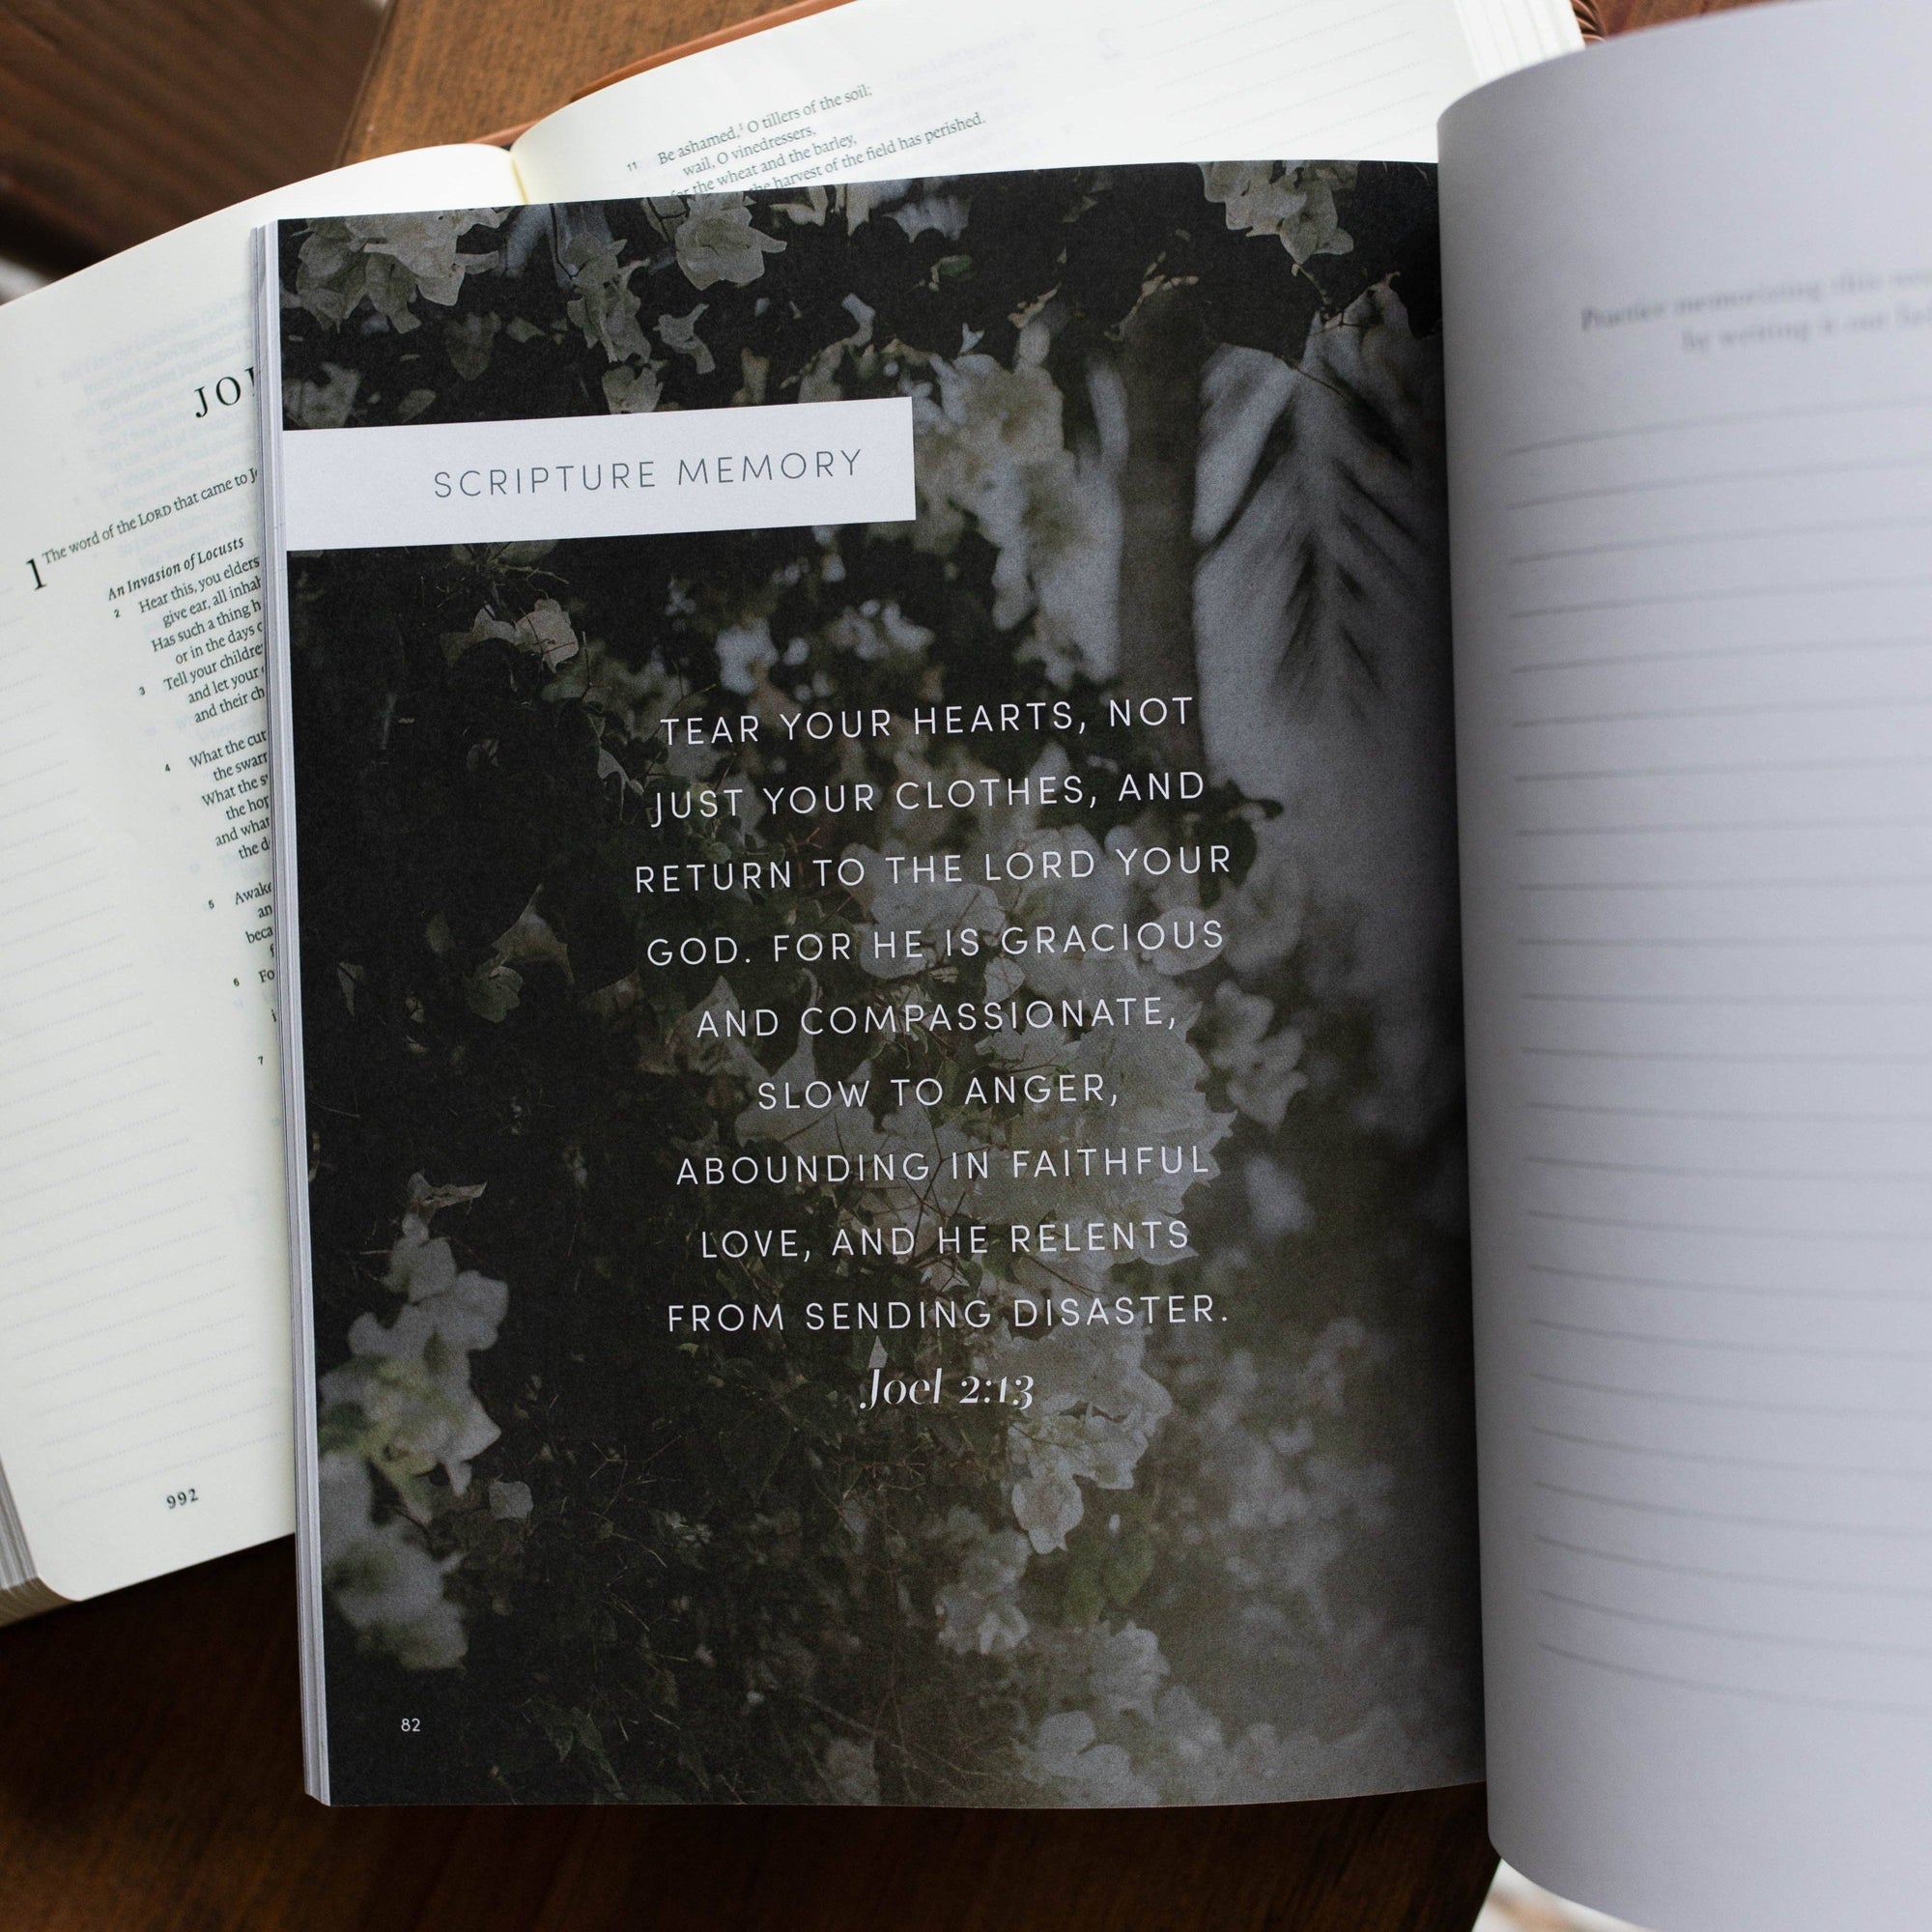 11 Be ashamed, O tillers of the soil;
wail, O vinedressers,
for the wheat and the barley,
the harvest of the field has perished.
1 The word of the LORD that came to
An Invasion of Locusts
2 Hear this, you elders
give ear, all
Has such a thing
or in the days
3 Tell your
and let your
and their
4 What the
the
What the
the
and what
the
5
6
7
992
SCRIPTURE MEMORY
TEAR YOUR HEARTS, NOT
JUST YOUR CLOTHES, AND
RETURN TO THE LORD YOUR
GOD. FOR HE IS GRACIOUS
AND COMPASSIONATE,
SLOW TO ANGER,
ABOUNDING IN FAITHFUL
LOVE, AND HE RELENTS
FROM SENDING DISASTER.
Joel 2:13
82
Practice memorizing this
by writing it out